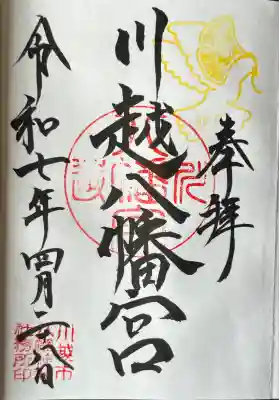 奉拝
川越八幡宮
令和七年四月二八日
川越市
社務所印